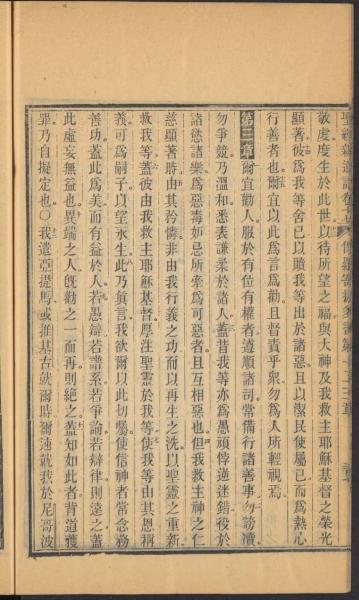 敬虔度生於此世以待所望之福與大神及我救主耶穌基督之榮光
顯著彼爲我等舍己以贖我等出於諸惡且以潔民使屬己而爲熱心
行善者也爾宜以此爲言爲勸且督責乎衆勿爲人所輕視焉
第三章 爾宜勸人服於有位有權者遵順諸司常備行諸善事勿謗瀆
勿爭競乃溫和悉表謙柔於諸人蓋昔我等亦爲愚頑悖逆迷錯役於
諸慾諸樂爲惡毒妒忌所牽爲可惡者且互相惡也但我救主神之仁
慈顯著時由其矜憐非由我行義之功而以再生之洗以聖靈之重新
救我等蓋彼由我救主耶穌基督厚注聖靈於我等使我等由其恩稱
義可爲嗣子以望永生此乃眞言我欲爾以此切屬使信神者常念務
善功蓋此爲美而有益於人若愚辯若譜系若爭論若辯律則遠之蓋
此虛妄無益也異端之人旣勸之一而再則絕之蓋知如此者背道獲
罪乃自擬定也○我遣亞提馬或推基古就爾時爾速就我於尼哥波